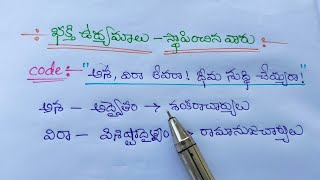 భక్తి ఉద్యమాలు - స్థాపించిన వారు
code:- "అస, విరా శివరా! ధీమ సుధీ చేయ్యరా!"
అస - అద్వైతం → శంకరాచార్యులు
విరా - విశిష్టాద్వైతం → రామానుజాచార్యులు